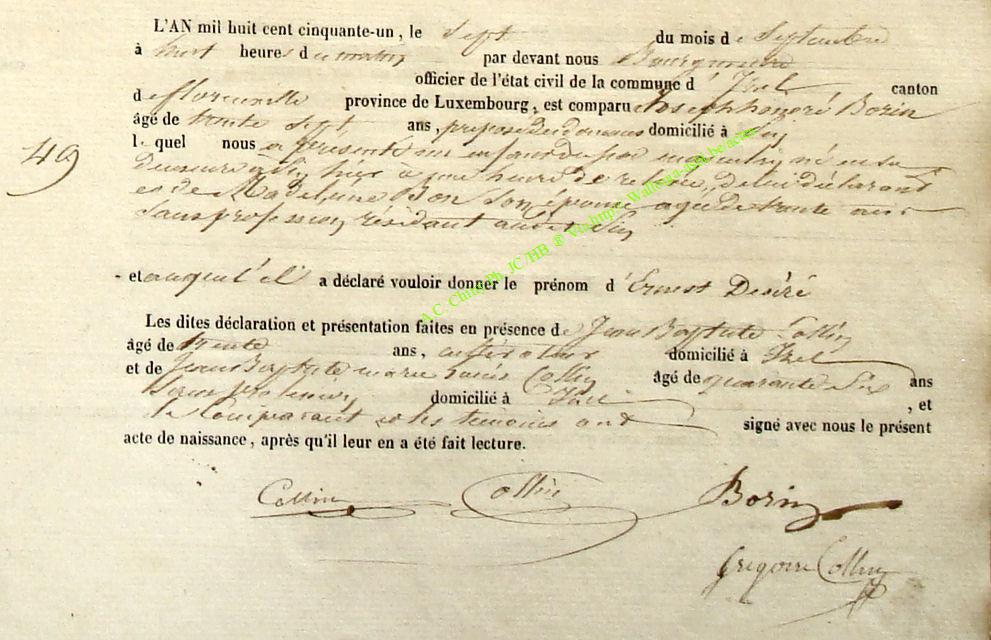 L'AN mil huit cent cinquante-un, le sept du mois de Septembre
à huit heures du matin par devant nous Bourgmestre
officier de l'état civil de la commune d'Izel canton
de florenville province de Luxembourg, est comparu Joseph honoré Borin
âgé de trente sept ans, préposé des douanes domicilié à
49
le quel nous a présenté un enfant du sexe masculin, né en sa
demeure à hier à une heure de relevée, de lui déclarant
et de Madeleine Bon son épouse agée de trente ans
sans profession, résidant audit
- et auquel il a déclaré vouloir donner le prénom d'Ernest Désiré
Les dites déclaration et présentation faites en présence de Jean Baptiste Collin
âgé de trente ans, cultivateur domicilié à Izel
et de Jean Baptiste marie Collin âgé de quarante six ans
sans profession domicilié à Izel , et
le comparant et les témoins ont signé avec nous le présent
acte de naissance, après qu'il leur en a été fait lecture.
Collin Collin Borin
Grégoire Collin
A.C. Chiny Ph. JC/HB @